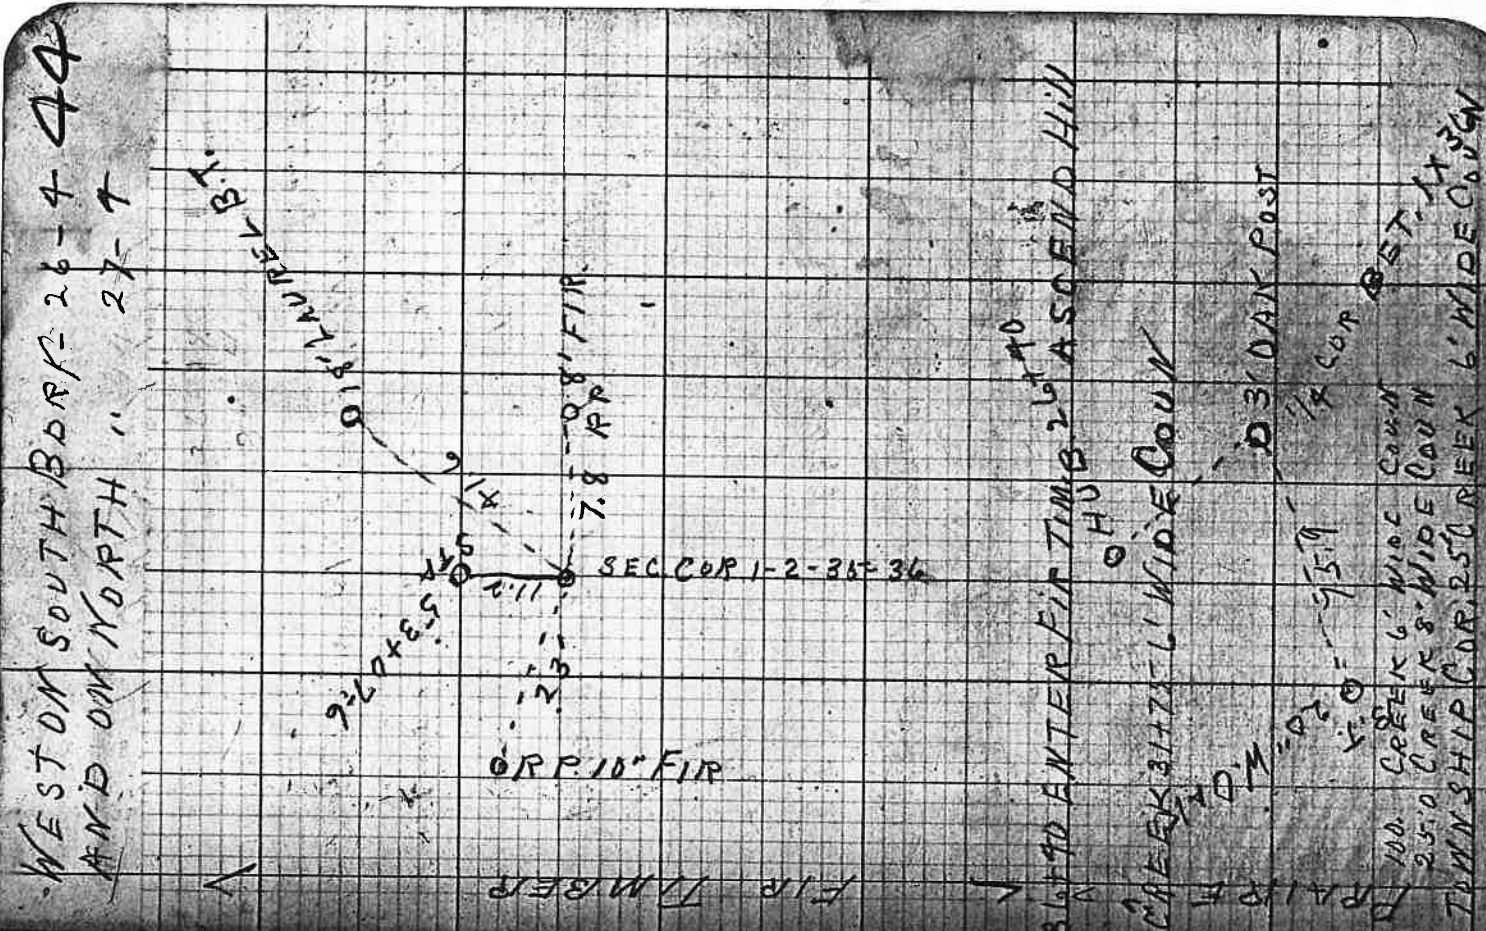 44
WEST ON SOUTH BDRY- 26-4
AND ON NORTH " 27-4
18" LAUREL B.T.
8" FIR
7.8 RP
SEC. COR 1-2-35-36
11.2
23
R P. 10" FIR
FIR TIMBER
36+90 ENTER FIR TIMB 26+40 ASCEND HILL
HUB 26+40
CREEK 31+75- 6' WIDE COUN
3" OAK POST
1/4 COR BET. 1 X 36
75.9
PRAIRE
100. CREEK 6' WIDE COUN
25.0 CREEK 8' WIDE COUN
TOWNSHIP COR. 25' CREEK 6' WIDE COUN